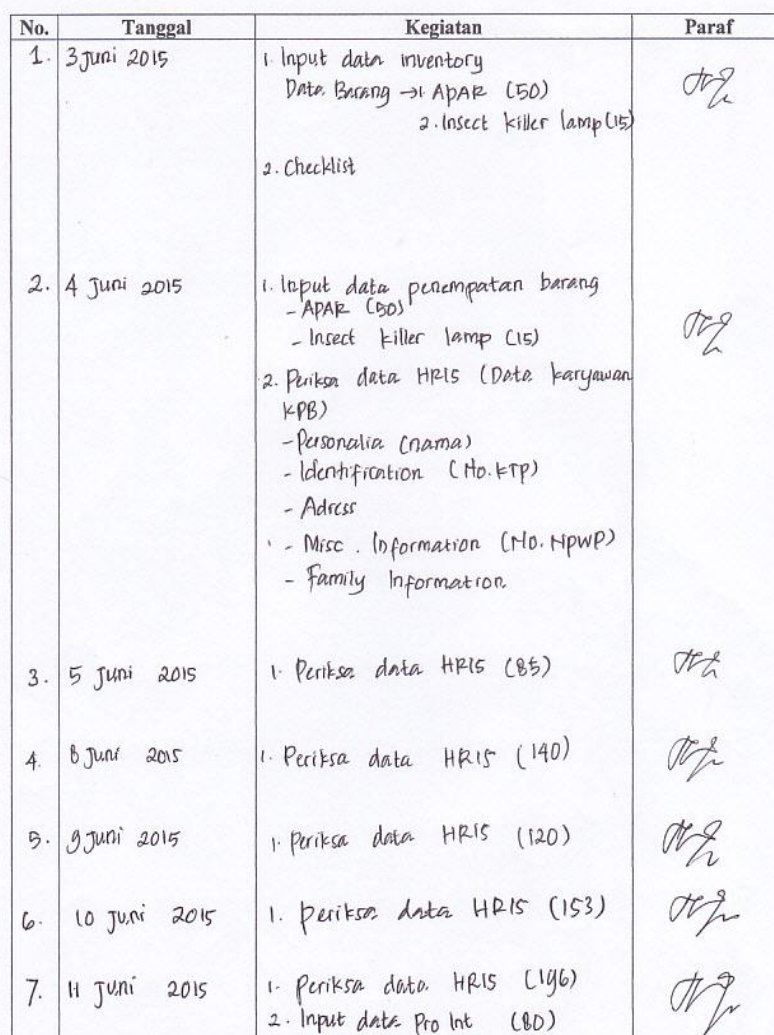 No. Tanggal Kegiatan Paraf
1. 3 Juni 2015 1. Input data inventory
Data Barang → 1. APAR (50)
2. Insect killer lamp (15)
2. Checklist
2. 4 Juni 2015 1. Input data penempatan barang
- APAR (50)
- Insect killer lamp (15)
2. Periksa data HRIS (Data karyawan
KPB)
- Personalia (nama)
- Identification (No. KTP)
- Adress
- Misc. Information (No. NPWP)
- Family Information
3. 5 Juni 2015 1. Periksa data HRIS (85)
4. 8 Juni 2015 1. Periksa data HRIS (140)
5. 9 Juni 2015 1. Periksa data HRIS (120)
6. 10 Juni 2015 1. Periksa data HRIS (153)
7. 11 Juni 2015 1. Periksa data HRIS (196)
2. Input data Pro Int (80)